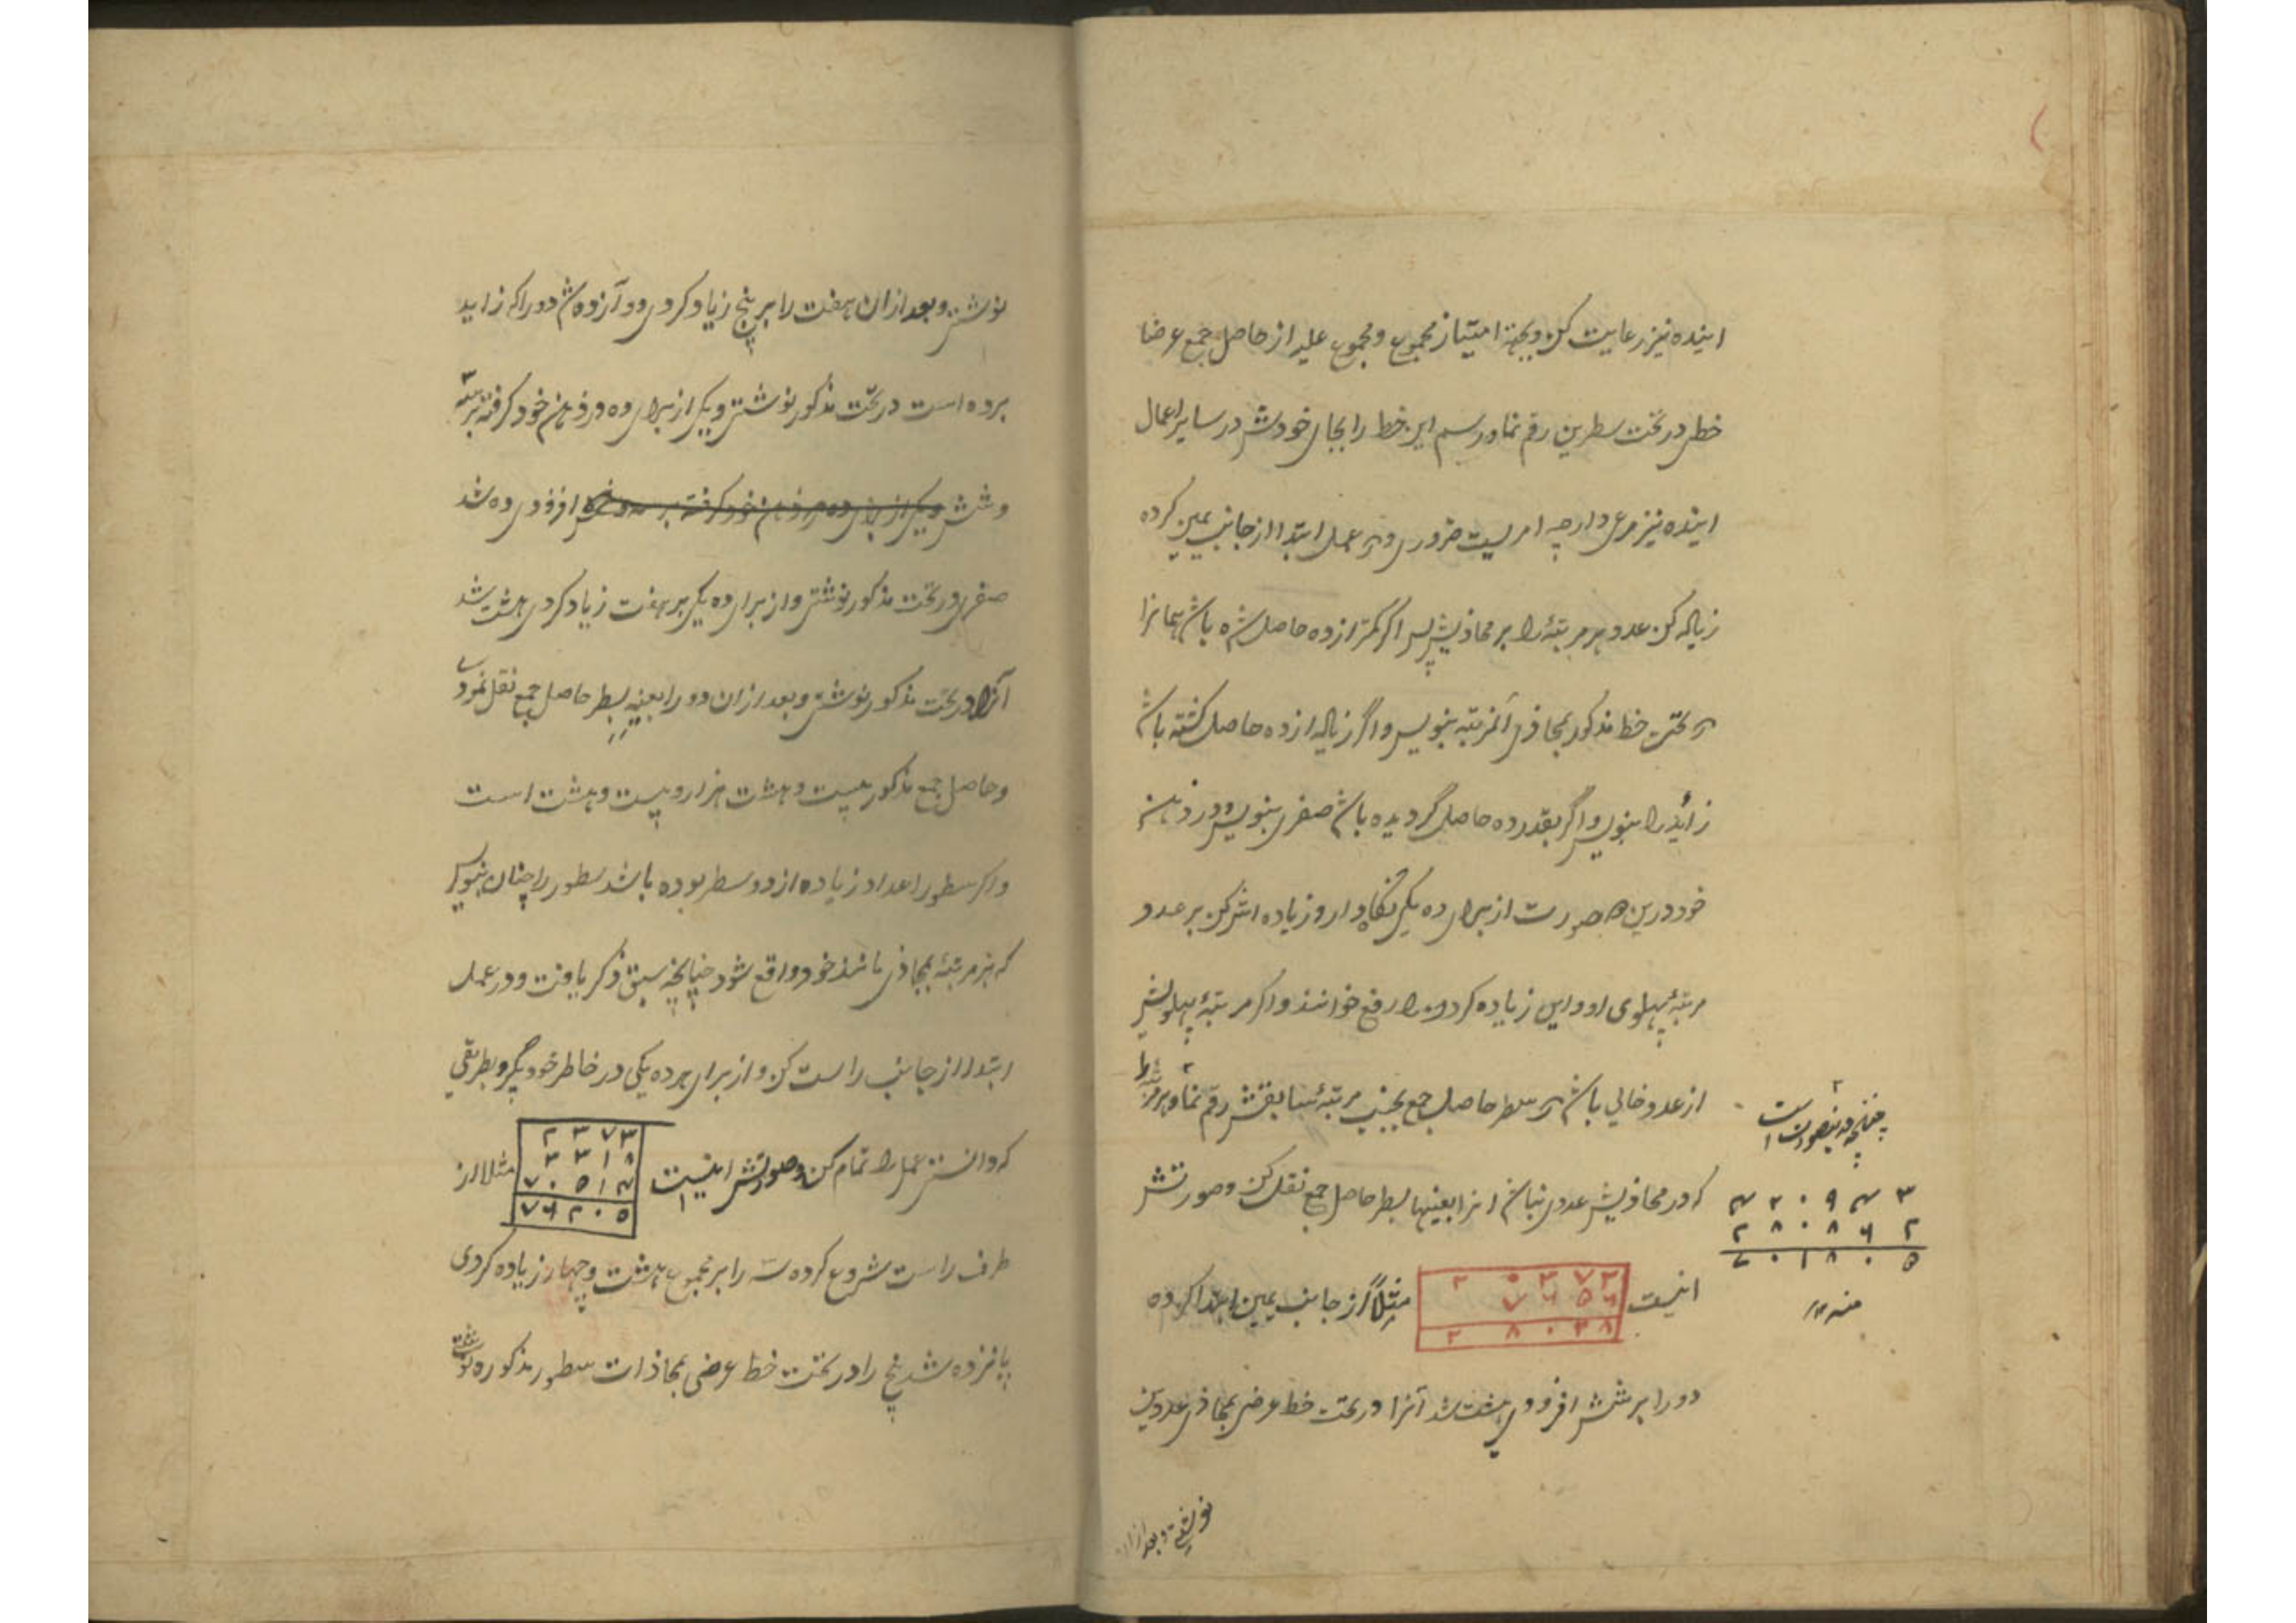 اینده نیز رعایت کن و بجهة امتیاز مجموع و مجموع علیه از حاصل جمع عرضا
خطی در تحت سطرین رقم نما و رسم این خط را بجای خودش در سایر اعمال
اینده نیز مرعی دار چه امریست ضروری و در عمل ابتدا از جانب یمین کرده
زیاله کن عدد هر مرتبهٔ را بر محاذیش پس اگر کمتر از ده حاصل شده باشد همانرا
در تحت خط مذکور بمحاذی آنمرتبه بنویس و اگر زیاله از ده حاصل کشته باشد
زائد را بنویس و اگر بقدر ده حاصل گردیده باشد صفری بنویس و در ذهن
خود درین صورت از برای ده یکی نگاه دار و زیاده اش کن بر عدد
مرتبهٔ پهلوی او و این زیاده کردن را رفع خوانند و اگر مرتبهٔ پهلویش
از عدد خالی باشد در سطر حاصل جمع بجنب مرتبهٔ سابقش رقم نما و هر مرتبهٔ را
که در محاذیش عددی نباشد انرا بعینها بسطر حاصل جمع نقل کن و صورتش
اینست
۲ ۰ ۳ ۷ ۲
۷ ۶ ۵ ۶
۲ ۸ ۰ ۲ ۸
مثلاً از جانب یمین ابتدا کرده
دو را بر شش افزودی هشت شد آنرا در تحت خط عرضی بمحاذی عددین
نوشتی و بعد ازان
۴ ۲ ۰ ۹ ۴ ۳
۲ ۸ ۰ ۸ ۶ ۲
۷ ۰ ۱ ۸ ۰ ۵
منه
نوشتی و بعد ازان هفت را بر پنج زیاد کردی دوازده شد دو را که زاید
برده است در تحت مذکور نوشتی و یکی از برای ده در ذهن خود کرفته بر سه
و شش افزودی ده شد
صفر در تحت مذکور نوشتی و از برای ده یکی بر هفت زیاد کردی هشت شد
آنرا در تحت مذکور نوشتی و بعد ازان دو را بعینه بسطر حاصل جمع نقل نمودی
و حاصل جمع مذکور بیست و هشت هزار و بیست و هشت است
و اکر سطور اعداد زیاده از دو سطر بوده باشد سطور را چنان بنویس
که هر مرتبهٔ بمحاذی مانند خود واقع شود چنانچه سبق ذکر یافت و در عمل
ابتدا از جانب راست کن و از برای هر ده یکی در خاطر خود بگیر و بطریقی
که دانستی عمل را تمام کن و صورتش اینست
۲ ۳ ۷ ۳
۳ ۳ ۱ ۸
۷ ۰ ۵ ۱ ۴
۷ ۶ ۲ ۰ ۵
مثلا از
طرف راست شروع کرده سه را بر مجموع هشت و چهار زیاده کردی
پانزده شد پنج را در تحت خط عرضی بمحاذات سطور مذکوره نوشتی